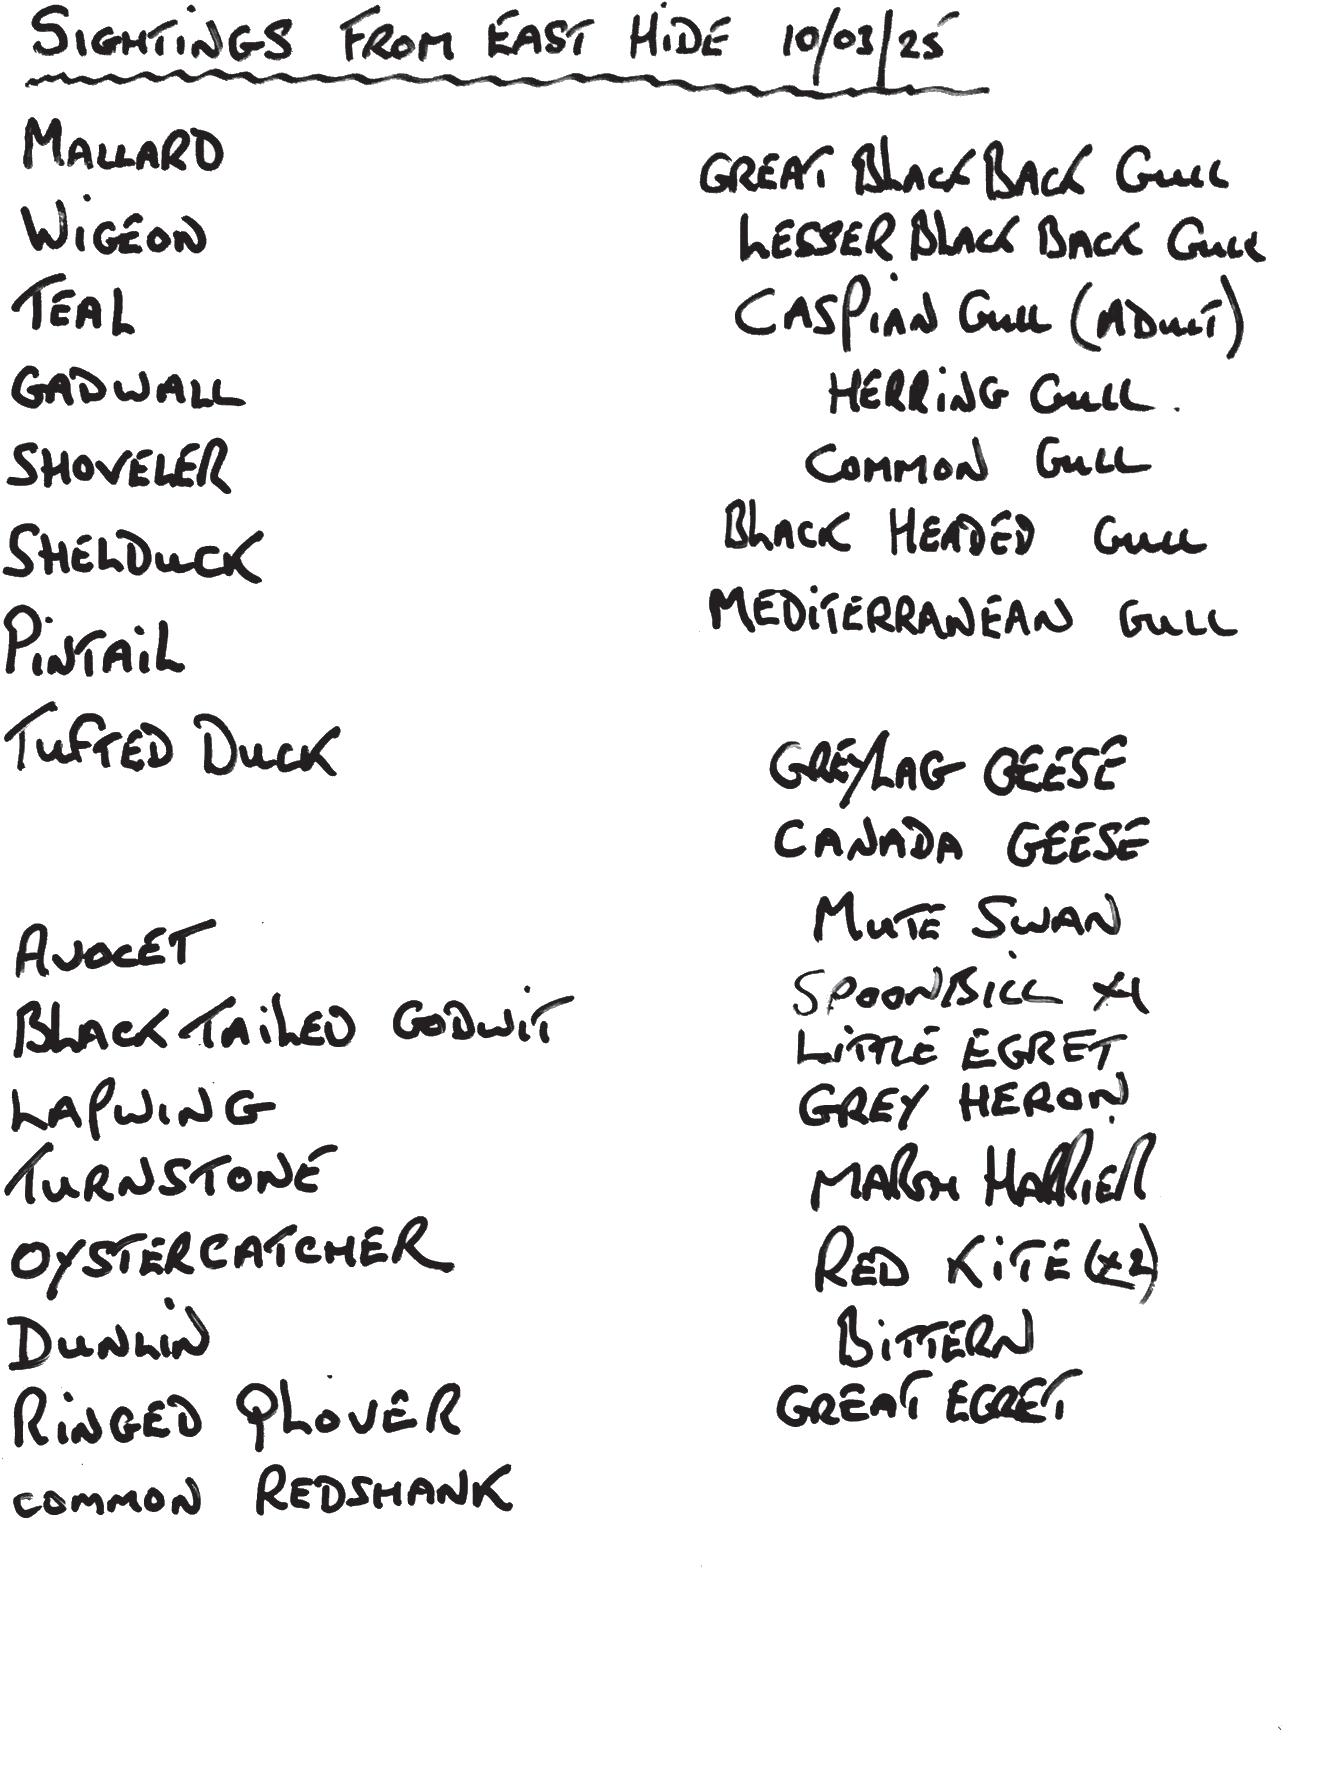 SIGHTINGS FROM EAST HIDE 10/03/25
MALLARD
WIGEON
TEAL
GADWALL
SHOVELER
SHELDUCK
PINTAIL
TUFTED DUCK
AVOCET
BLACK TAILED GODWIT
LAPWING
TURNSTONE
OYSTERCATCHER
DUNLIN
RINGED PLOVER
COMMON REDSHANK
GREAT BLACK BACK GULL
LESSER BLACK BACK GULL
CASPIAN GULL (ADULT)
HERRING GULL.
COMMON GULL
BLACK HEADED GULL
MEDITERRANEAN GULL
GREYLAG GEESE
CANADA GEESE
MUTE SWAN
SPOONBILL X1
LITTLE EGRET
GREY HERON
MARSH HARRIER
RED KITE (X2)
BITTERN
GREAT EGRET